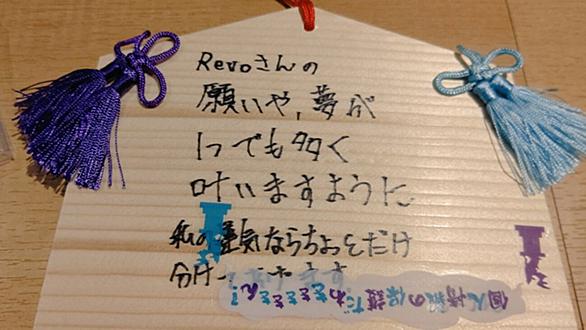 Revoさんの
願いや、夢が
1つでも多く
叶いますように
私の運気ならちょっとだけ
分け ます
個人情報の保護だ